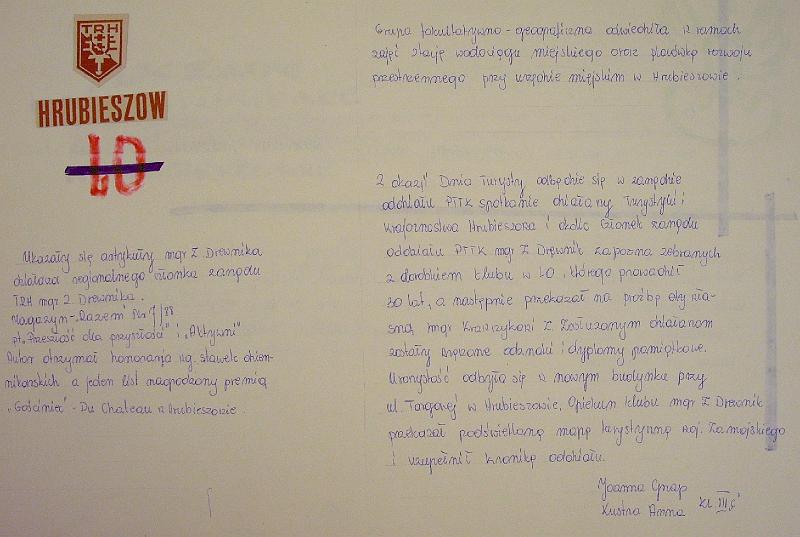 HRUBIESZOW
LO
Ukazały się artykuły mgr Z. Drewnika
działacza regionalnego członka zarządu
TRH mgr Z. Drewnika.
Magazyn "Razem" Nr 7/88
pt. "Przeszłość dla przyszłości" i "Aktywni"
Autor otrzymał honoraria wg. stawek dzien-
nikarskich a jeden list nagrodzony premią
"Gościniec" - Du Chateau w Hrubieszowie.
Grupa fakultatywno - geograficzna odwiedziła w ramach
zajęć stację wodociągu miejskiego oraz placówkę rozwoju
przestrzennego przy urzędzie miejskim w Hrubieszowie.
Z okazji Dnia Turysty odbędzie się w zarządzie
oddziału PTTK spotkanie działaczy Turystyki i
Krajoznawstwa Hrubieszowa i okolic. Członek zarządu
oddziału PTTK mgr Z. Drewnik zapozna zebranych
z dorobkiem klubu w LO, którego prowadził
30 lat, a następnie przekazał na prośbę
mgr Z. Zasłużonym działaczom
zostały wręczone odznaki i dyplomy pamiątkowe.
Uroczystość odbyła się w nowym budynku przy
ul. Targowej w Hrubieszowie. Opiekun klubu mgr Z. Drewnik
przekazał podświetlaną mapę turystyczną woj. Zamojskiego
i uzupełnił kronikę oddziału.
Joanna Gnap
Kustra Anna kl III c